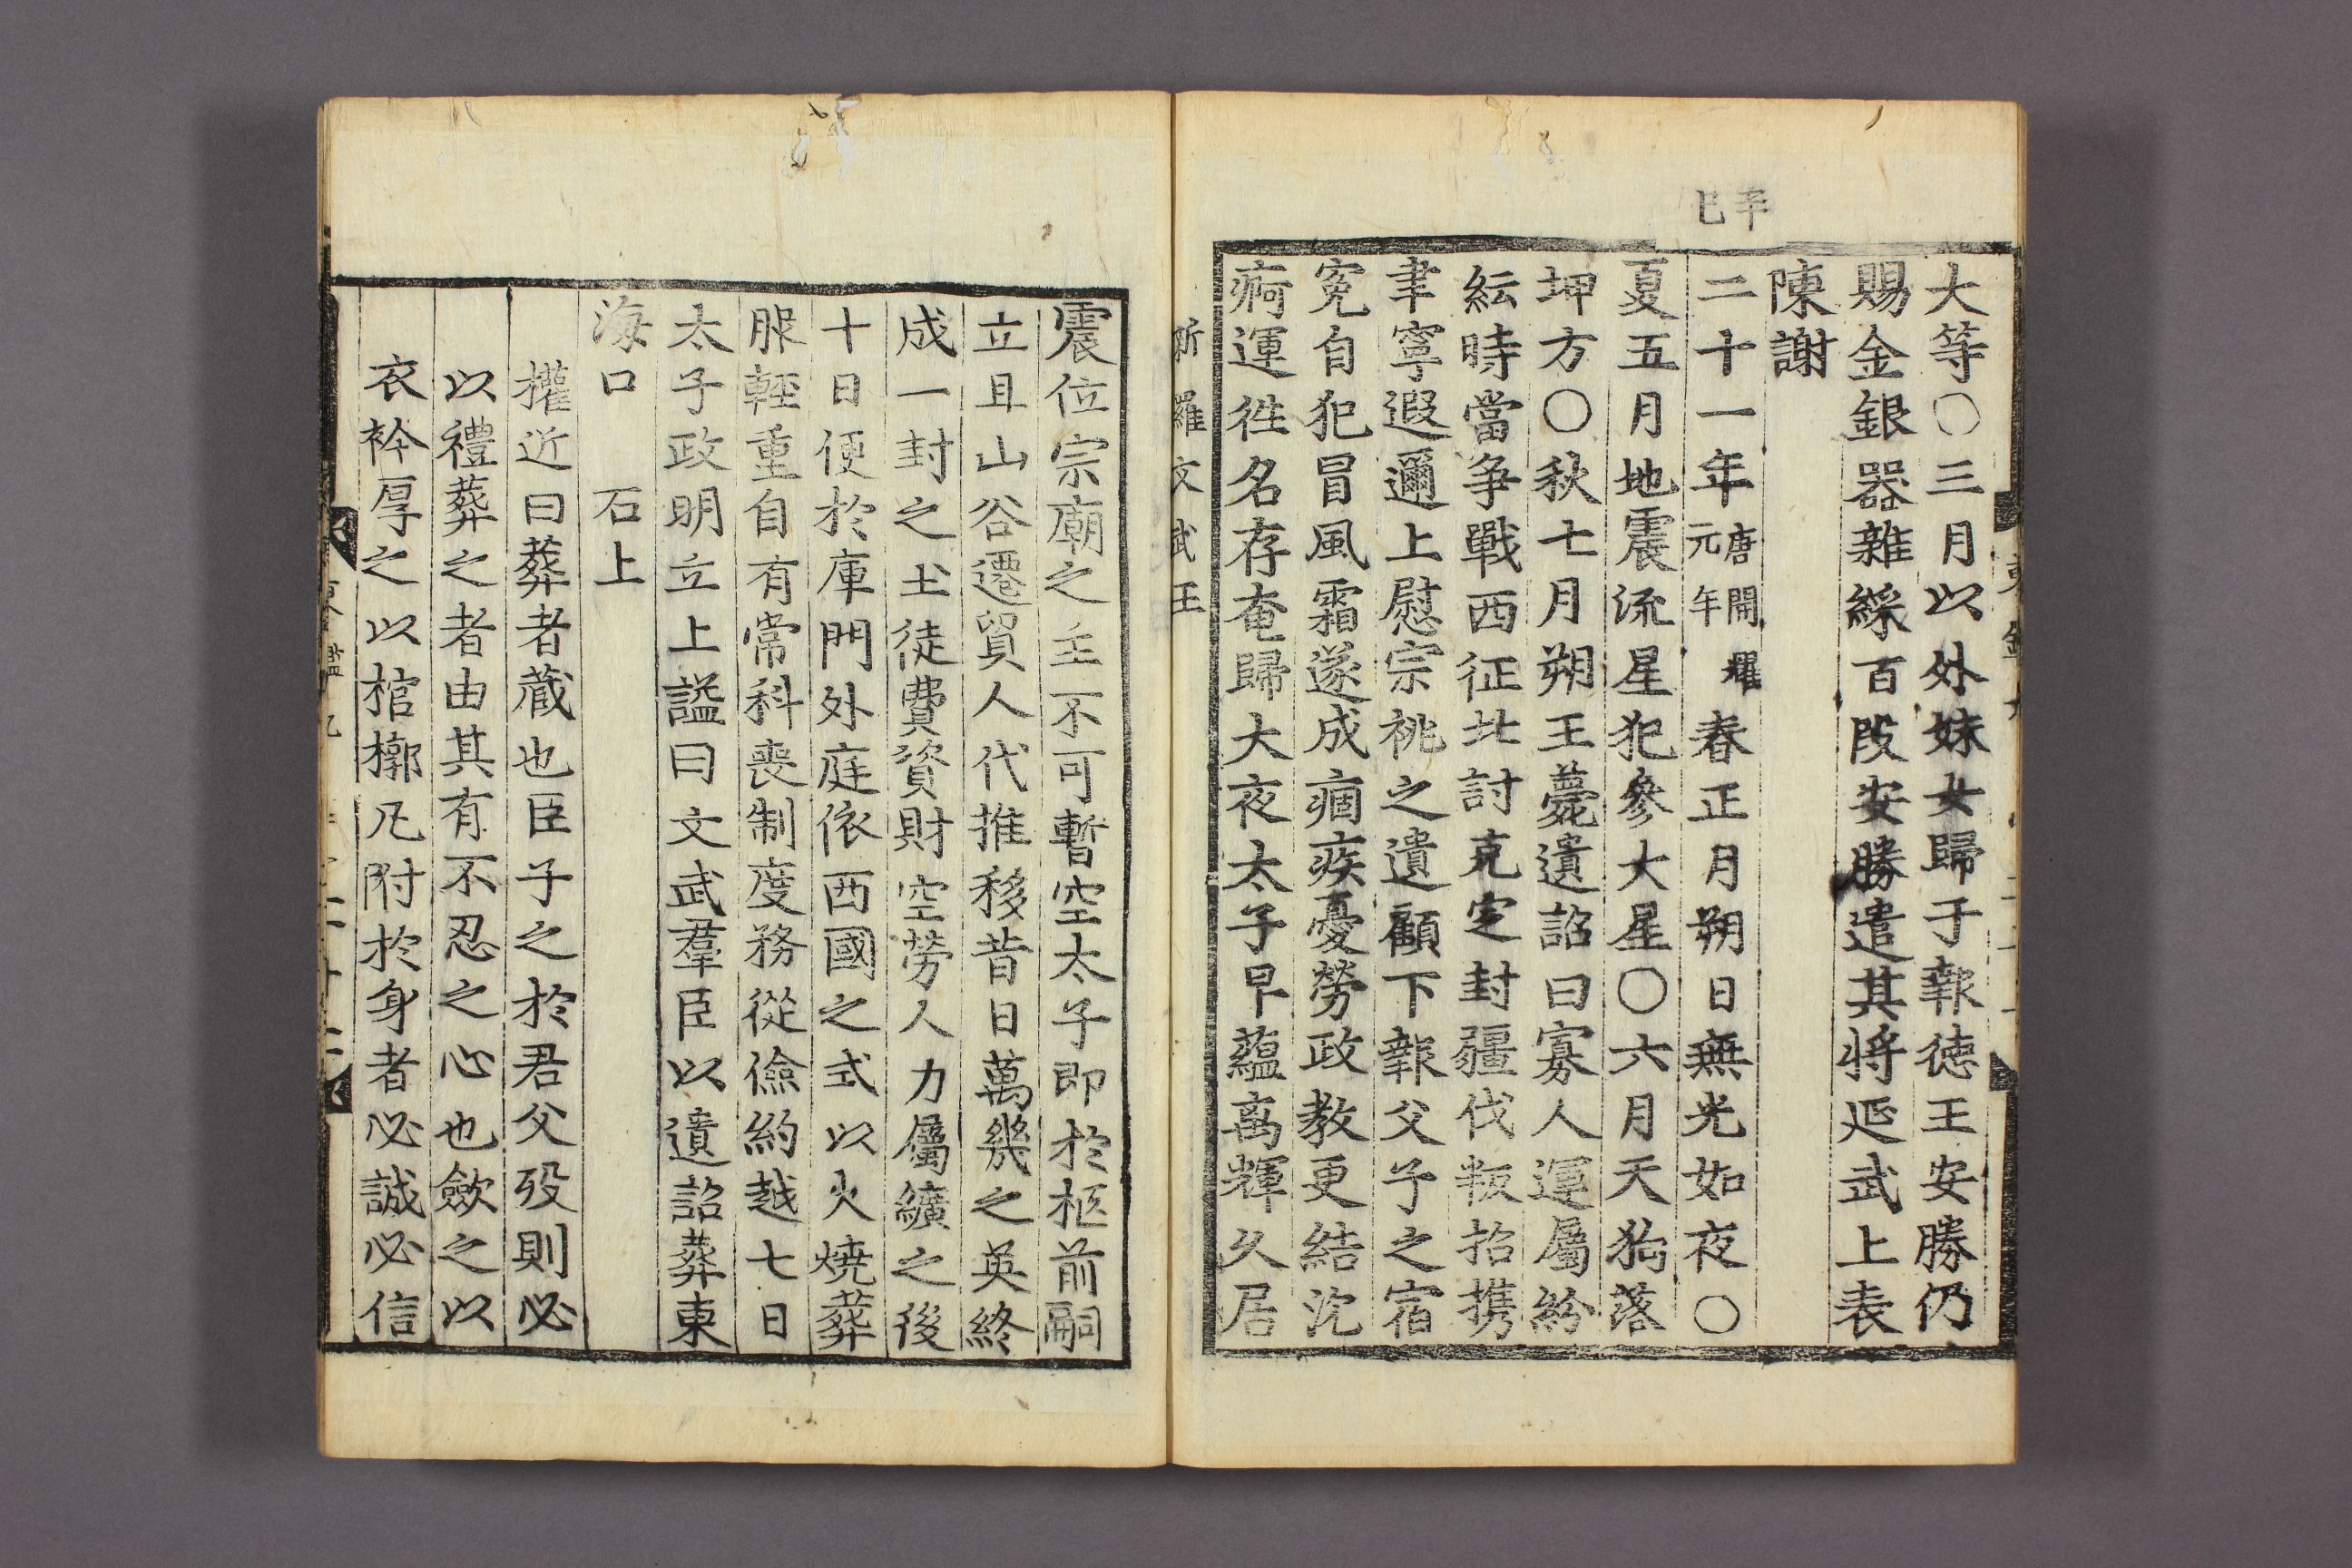 辛巳
大等○三月以外妹女歸于報徳王安勝仍
賜金銀器雜綵百段安勝遣其将延武上表
陳謝
二十一年唐開耀元年春正月朔日無光如夜○
夏五月地震流星犯參大星○六月天狗落
坤方○秋七月朔王薨遺詔曰寡人運屬紛
紜時當争戰西征北討克定封疆伐叛招携
聿寧遐邇上慰宗祧之遺顧下報父子之宿
寃自犯冒風霜遂成痼疾憂勞政教更結沉
痾運徃名存奄歸大夜太子早蘊离輝久居
新羅文武王
震位宗廟之主不可暫空太子即於柩前嗣
立且山谷遷貿人代推移昔日萬幾之英終
成一封之土徒費資財空勞人力屬纊之後
十日便於庫門外庭依西國之式以火燒葬
服輕重自有常科喪制度務從儉約越七日
太子政明立上謚曰文武羣臣以遺詔葬東
海口　石上
權近曰葬者蔵也臣子之於君父歿則必
以禮葬之者由其有不忍之心也斂之以
衣衿厚之以棺槨凡附於身者必誠必信